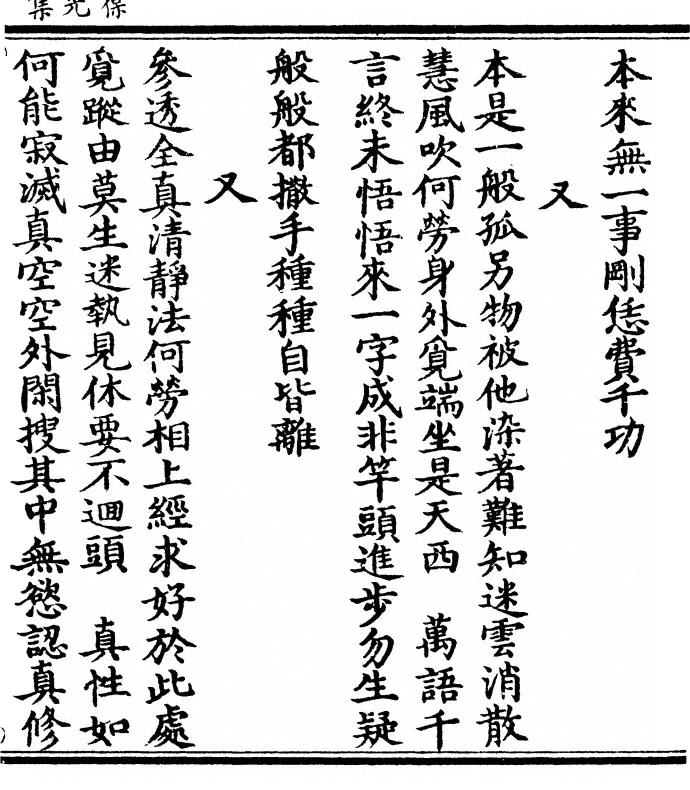 葆光集
本來無一事剛恁費千功
又
本是一般孤另物被他染著難知迷雲消散
慧風吹何勞身外覓端坐是天西　萬語千
言終未悟悟來一字成非竿頭進步勿生疑
般般都撒手種種自皆離
又
參透全真清靜法何勞相上經求好於此處
覓蹤由莫生迷執見休要不迴頭　真性如
何能寂滅真空空外閑搜其中無慾認真修